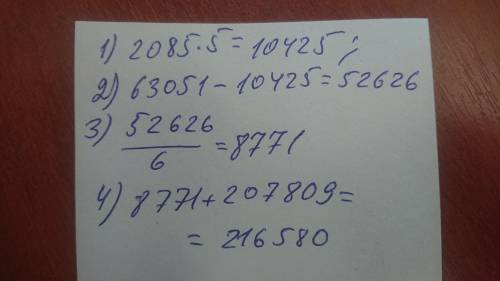 1) 2085·5=10425;
2) 63051-10425=52626
3) 52626/6=8771
4) 8771+207809=
= 216580